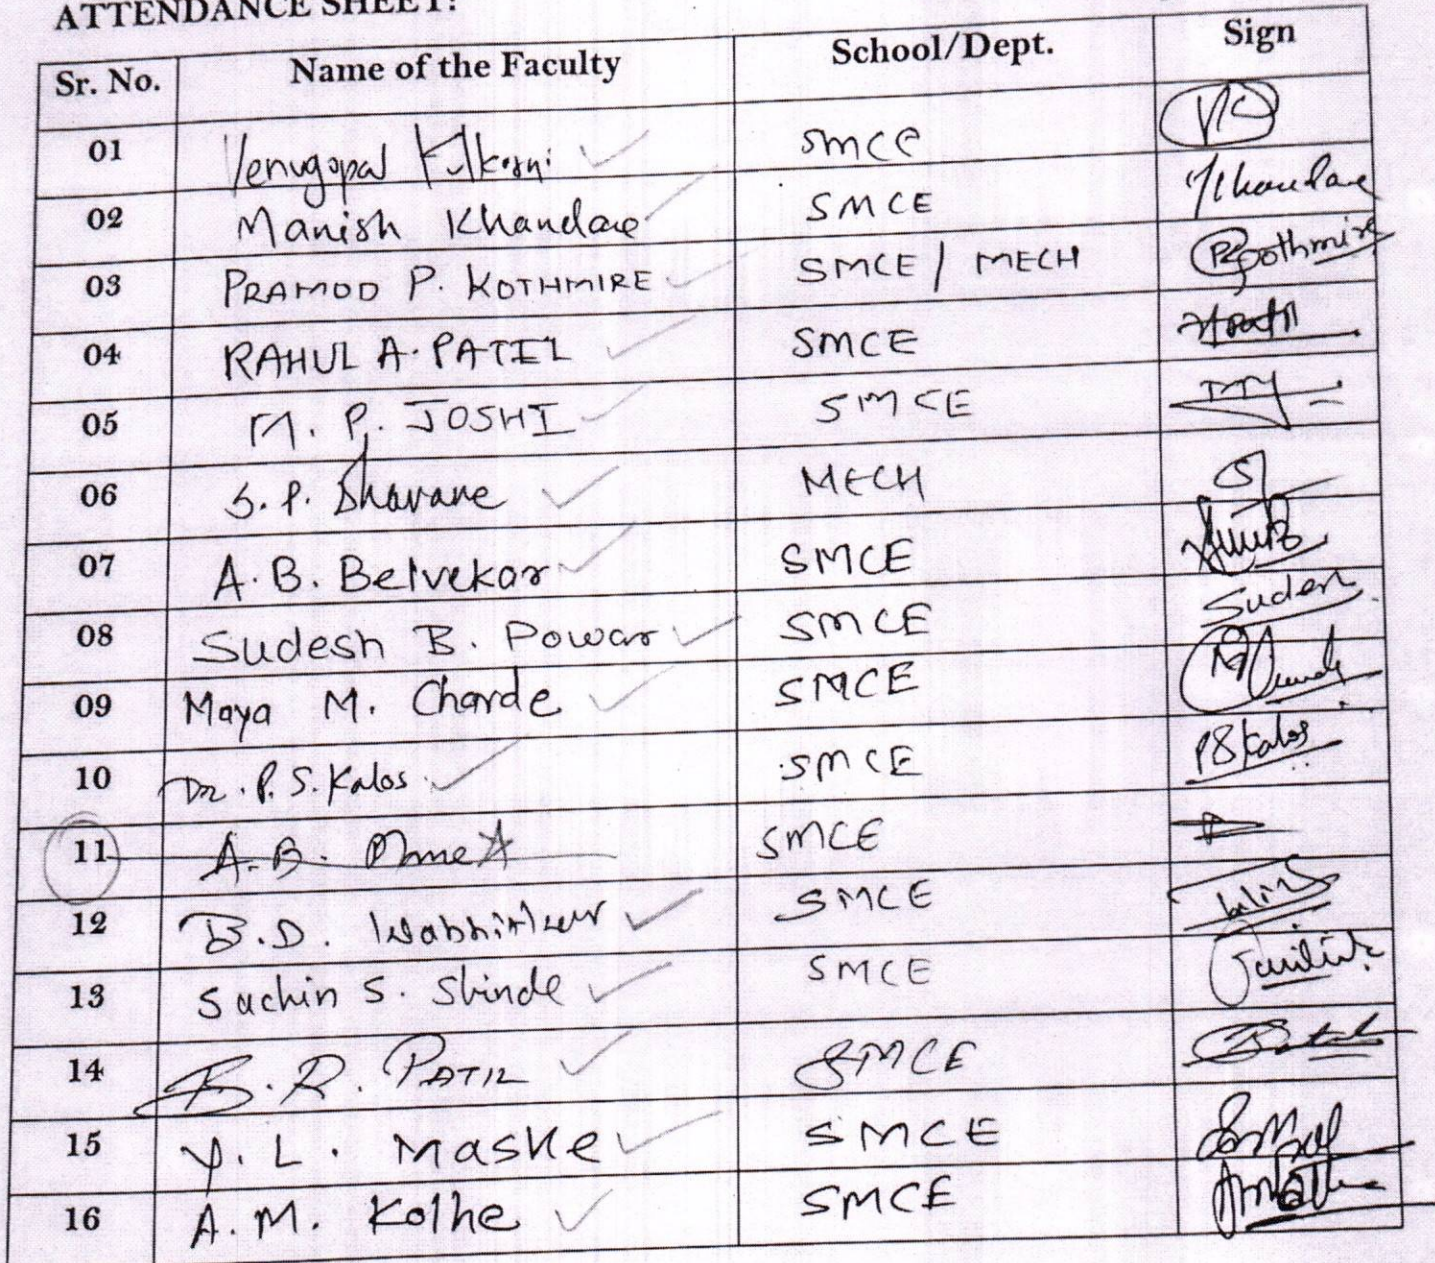 ATTENDANCE SHEET:
Sr. No. Name of the Faculty School/Dept. Sign
01 Venugopal Kulkarni SMCE VK
02 Manish Khandare SMCE Khandare
03 PRAMOD P. KOTHMIRE SMCE / MECH PKothmire
04 RAHUL A. PATIL SMCE
05 M. P. JOSHI SMCE
06 S. P. Bhavane MECH
07 A. B. Belvekar SMCE
08 Sudesh B. Powar SMCE Sudesh
09 Maya M. Charde SMCE
10 Dr. P. S. Kalos SMCE PSKalos
11 A. B. Mane SMCE
12 B. D. SMCE
13 Sachin S. Shinde SMCE
14 B. R. PATIL SMCE
15 Y. L. Maske SMCE
16 A. M. Kolhe SMCE